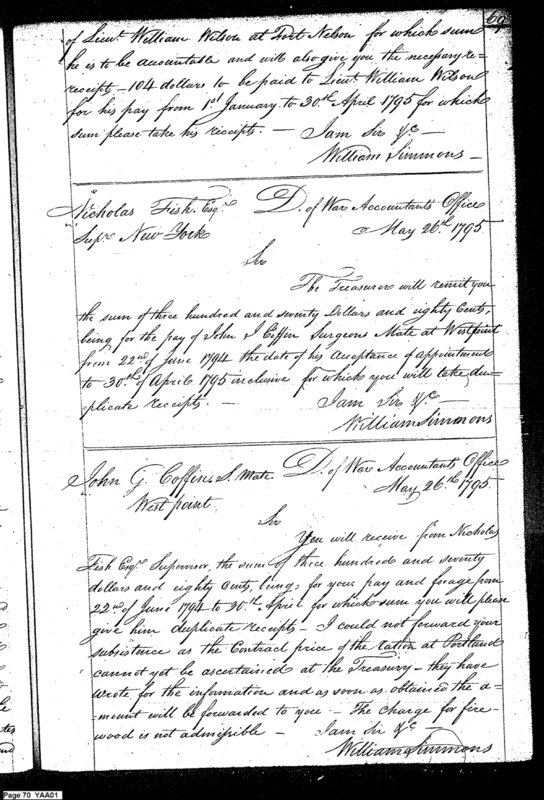 69
of Lieut. William Wilson at Fort Nelson for which sum
he is to be accountable and will also give you the necessary re-
receipts - 104 dollars to be paid to Lieut William Wilson
for his pay from 1st January to 30th April 1795 for which
sum please take his receipts. — I am Sir &c —
William Simmons —
Nicholas Fish Esqr. D. of War Accountants Office
Supr. New York May 26th 1795
Sir
The Treasurer will remit you
the sum of three hundred and seventy Dollars and eighty Cents,
being for the pay of John G Coffin Surgeons Mate at Westpoint
from 22nd of June 1794 the date of his acceptance of appointment
to 30th of April 1795 inclusive for which you will take du-
plicate receipts. — I am Sir &c —
William Simmons
John G. Coffin S. Mate D. of War Accountants Office
West point May 26th 1795
Sir
You will receive from Nicholas
Fish Esqr. Supervisor, the sum of three hundred and seventy
dollars and eighty Cents, being for your pay and forage from
22nd of June 1794 to 30th April for which sum you will please
give him duplicate receipts — I could not forward your
subsistence as the Contract price of the ration at Portland
cannot yet be ascertained at the Treasury — they have
wrote for the information and as soon as obtained the a-
-mount will be forwarded to you — The charge for fire
wood is not admissible — I am Sir &c —
William Simmons
Page 70 YAA01